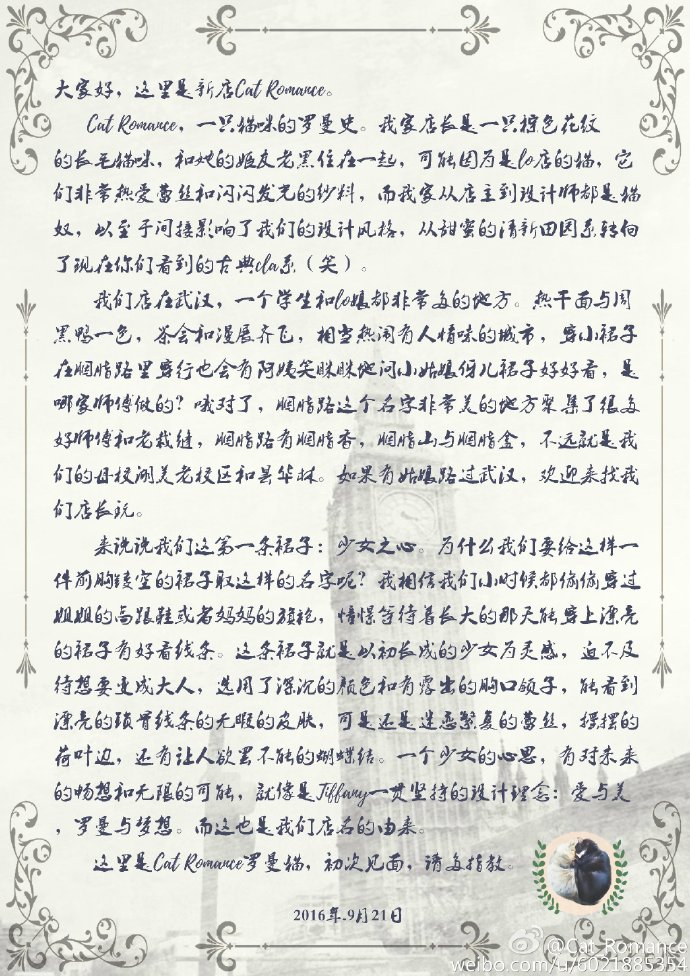 大家好，这里是新店Cat Romance。
Cat Romance，一只猫咪的罗曼史。我家店长是一只棕色花纹
的长毛猫咪，和她的姬友老黑住在一起，可能因为是lo店的猫，它
们非常热爱蕾丝和闪闪发光的纱料，而我家从店主到设计师都是猫
奴，以至于间接影响了我们的设计风格，从甜蜜的清新田园系转向
了现在你们看到的古典cla系（笑）。
我们店在武汉，一个学生和lo娘都非常多的地方。热干面与周
黑鸭一色，茶会和漫展齐飞，相当热闹有人情味的城市，穿小裙子
在胭脂路里穿行也会有阿姨笑眯眯地问小姑娘伢儿裙子好好看，是
哪家师傅做的？哦对了，胭脂路这个名字非常美的地方聚集了很多
好师傅和老裁缝，胭脂路有胭脂香，胭脂山与胭脂金，不远就是我
们的母校湖美老校区和昙华林。如果有姑娘路过武汉，欢迎来找我
们店长玩。
来说说我们这第一条裙子：少女之心。为什么我们要给这样一
件前胸镂空的裙子取这样的名字呢？我相信我们小时候都偷偷穿过
姐姐的高跟鞋或者妈妈的旗袍，憧憬等待着长大的那天能穿上漂亮
的裙子有好看线条。这条裙子就是以初长成的少女为灵感，迫不及
待想要变成大人，选用了深沉的颜色和有露出的胸口领子，能看到
漂亮的锁骨线条的无暇的皮肤，可是还是迷恋繁复的蕾丝，摆摆的
荷叶边，还有让人欲罢不能的蝴蝶结。一个少女的心思，有对未来
的畅想和无限的可能，就像是Tiffany一贯坚持的设计理念：爱与美
，罗曼与梦想。而这也是我们店名的由来。
这里是Cat Romance罗曼猫，初次见面，请多指教。
2016年.9月21日
@Cat_Romance
weibo.com/u/6021885354